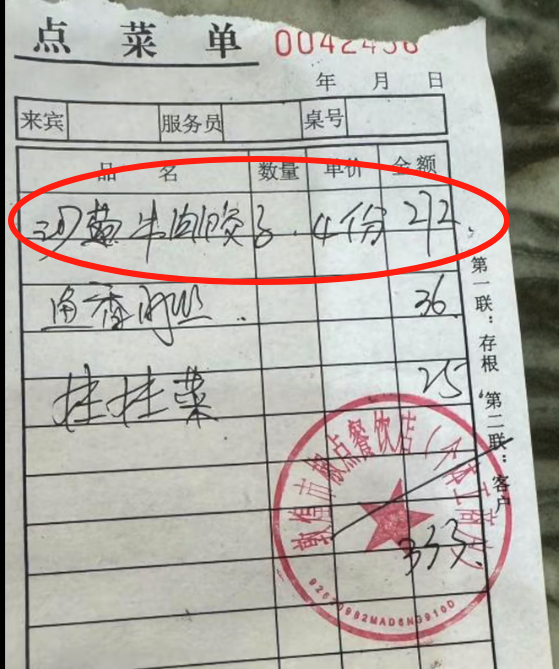 点菜单 0042436
年 月 日
来宾 服务员 桌号
品 名 数量 单价 金额
沙葱牛肉饺子 4份 272
鱼香肉丝 36
拌拌菜 25
333
第一联：存根 第二联：客户
敦煌市 点餐饮店(个体工商户)